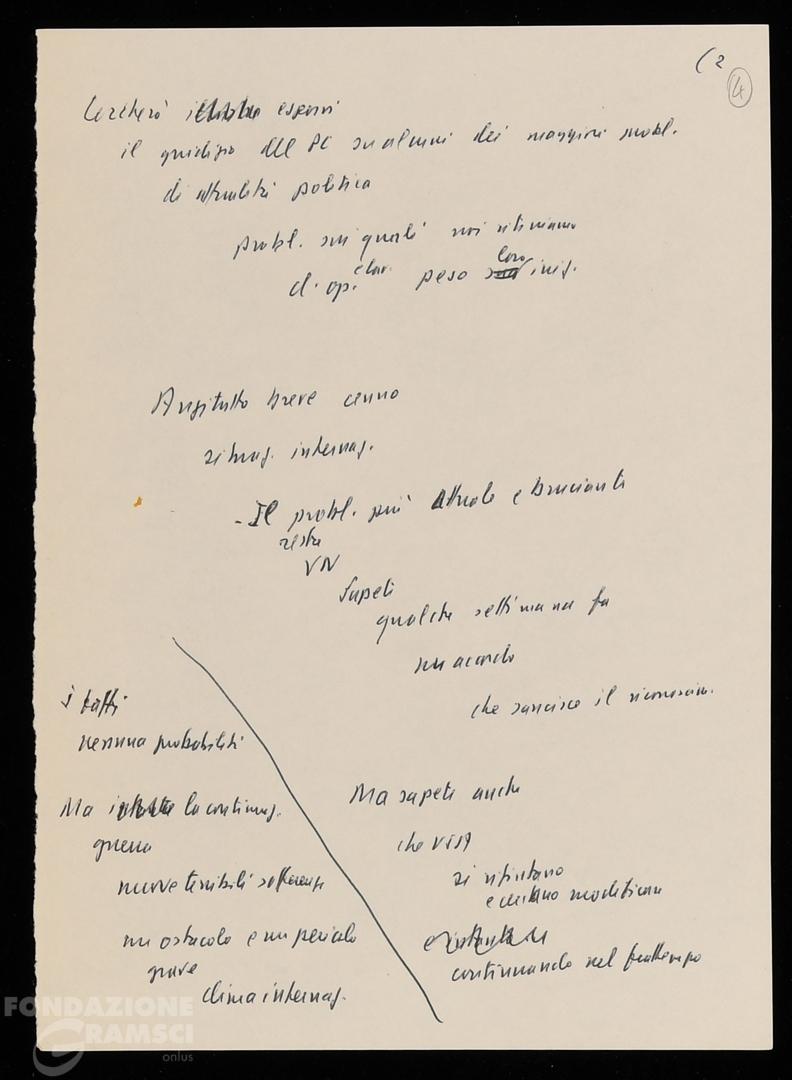 (2
4
Cercherò esporvi
il giudizio del PC su alcuni dei maggiori probl.
di attualità politica
probl. sui quali noi riteniamo
d. op. elav. peso loro inig.
Anzitutto breve cenno
situaz. internaz.
- Il probl. più attuale e bruciante
resta
VN
Sapete
qualche settimana fa
un accordo
che sancisce il riconoscim.
Ma sapete anche
che USA
si rifiutano
e cercano modificare
continuando nel frattempo
i fatti
nessuna probabilità
Ma la continuaz.
guerra
nuove terribili sofferenze
un ostacolo e un pericolo
grave
clima internaz.
FONDAZIONE
GRAMSCI
onlus